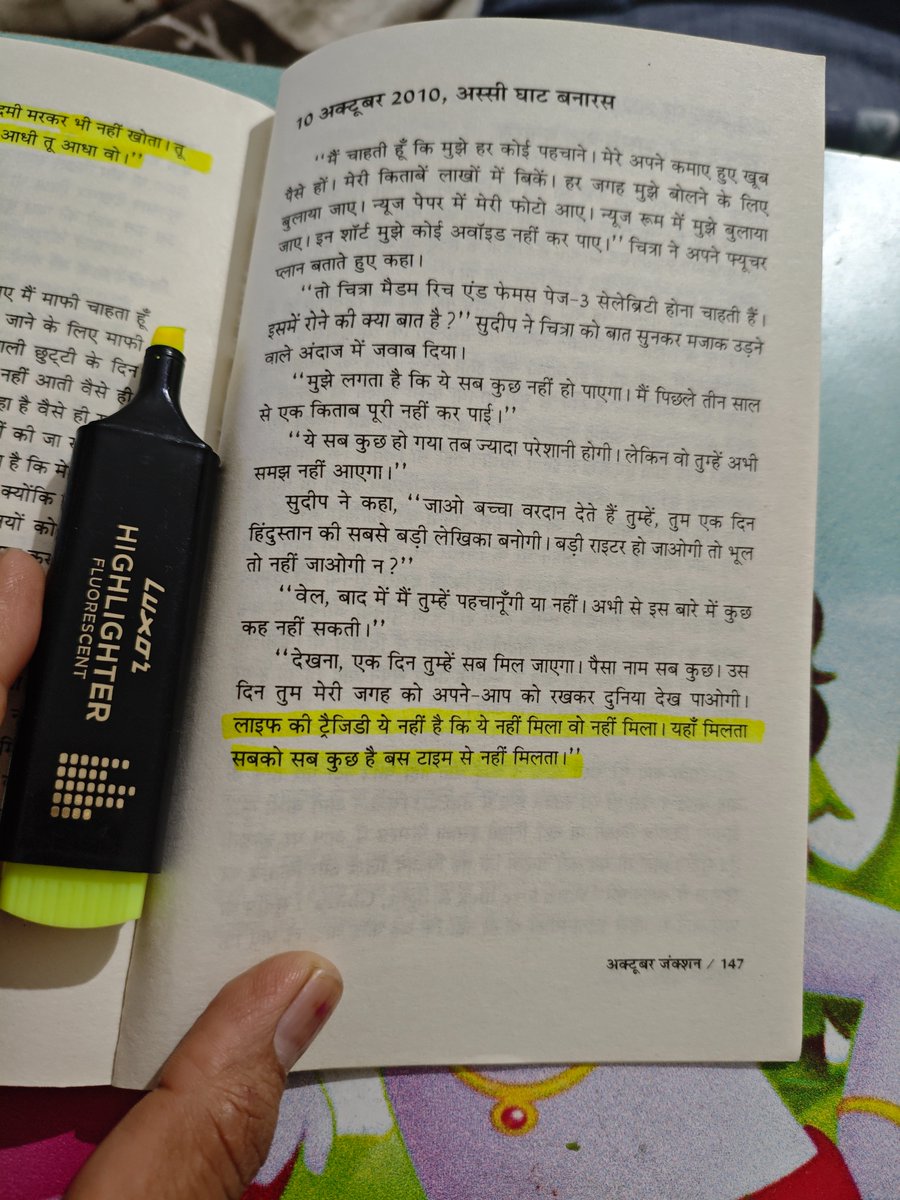 मरकर भी नहीं खोता। तू
आधी तू आधा वो।”
मैं माफी चाहता हूँ
जाने के लिए माफी
छुट्टी के दिन
नहीं आती वैसे ही
है वैसे ही
की जा
है कि
क्योंकि
को
LUXOR
HIGHLIGHTER
FLUORESCENT
10 अक्टूबर 2010, अस्सी घाट बनारस
“मैं चाहती हूँ कि मुझे हर कोई पहचाने। मेरे अपने कमाए हुए खूब
पैसे हों। मेरी किताबें लाखों में बिकें। हर जगह मुझे बोलने के लिए
बुलाया जाए। न्यूज पेपर में मेरी फोटो आए। न्यूज रूम में मुझे बुलाया
जाए। इन शॉर्ट मुझे कोई अवॉइड नहीं कर पाए।” चित्रा ने अपने फ्यूचर
प्लान बताते हुए कहा।
“तो चित्रा मैडम रिच एंड फेमस पेज-3 सेलेब्रिटी होना चाहती हैं।
इसमें रोने की क्या बात है?” सुदीप ने चित्रा को बात सुनकर मजाक उड़ने
वाले अंदाज में जवाब दिया।
“मुझे लगता है कि ये सब कुछ नहीं हो पाएगा। मैं पिछले तीन साल
से एक किताब पूरी नहीं कर पाई।”
“ये सब कुछ हो गया तब ज्यादा परेशानी होगी। लेकिन वो तुम्हें अभी
समझ नहीं आएगा।”
सुदीप ने कहा, “जाओ बच्चा वरदान देते हैं तुम्हें, तुम एक दिन
हिंदुस्तान की सबसे बड़ी लेखिका बनोगी। बड़ी राइटर हो जाओगी तो भूल
तो नहीं जाओगी न?”
“वेल, बाद में मैं तुम्हें पहचानूँगी या नहीं। अभी से इस बारे में कुछ
कह नहीं सकती।”
“देखना, एक दिन तुम्हें सब मिल जाएगा। पैसा नाम सब कुछ। उस
दिन तुम मेरी जगह को अपने-आप को रखकर दुनिया देख पाओगी।
लाइफ की ट्रैजिडी ये नहीं है कि ये नहीं मिला वो नहीं मिला। यहाँ मिलता
सबको सब कुछ है बस टाइम से नहीं मिलता।”
अक्टूबर जंक्शन / 147